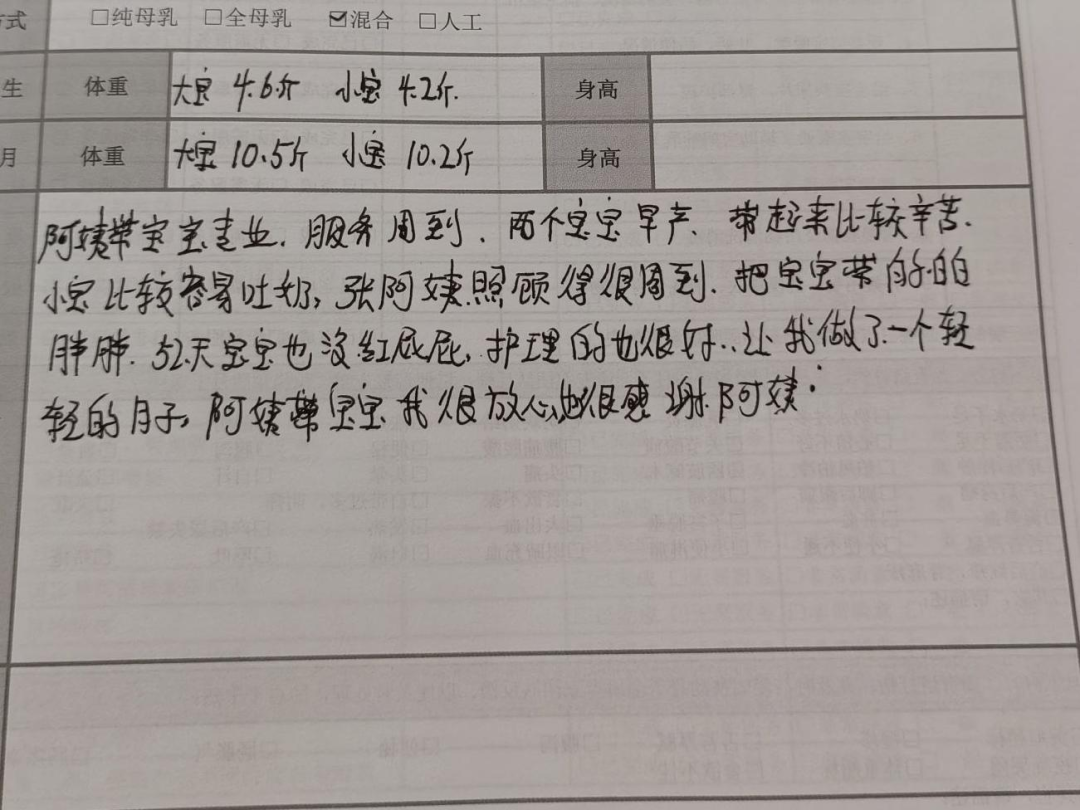 式 □纯母乳 □全母乳 ☑混合 □人工
生 体重 大宝 4.6斤 小宝 4.2斤. 身高
月 体重 大宝 10.5斤 小宝 10.2斤 身高
阿姨带宝宝专业. 服务周到. 两个宝宝早产. 带起来比较辛苦.
小宝比较容易吐奶, 张阿姨照顾得很周到. 把宝宝带的的
胖胖. 52天宝宝也没红屁屁, 护理的也很好.. 让我做了一个轻
轻的月子, 阿姨带宝宝我很放心也很感谢阿姨.